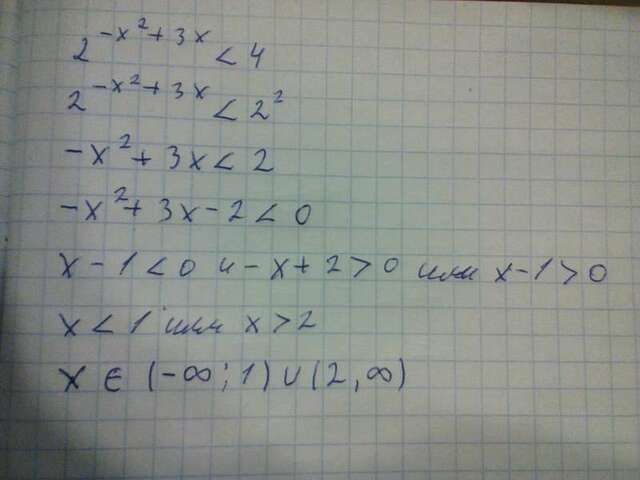 2^{-x^2+3x} < 4
2^{-x^2+3x} < 2^2
-x^2+3x < 2
-x^2+3x-2 < 0
x-1<0 и -x+2>0 или x-1>0
x<1 или x>2
x ∈ (-∞;1)∪(2,∞)